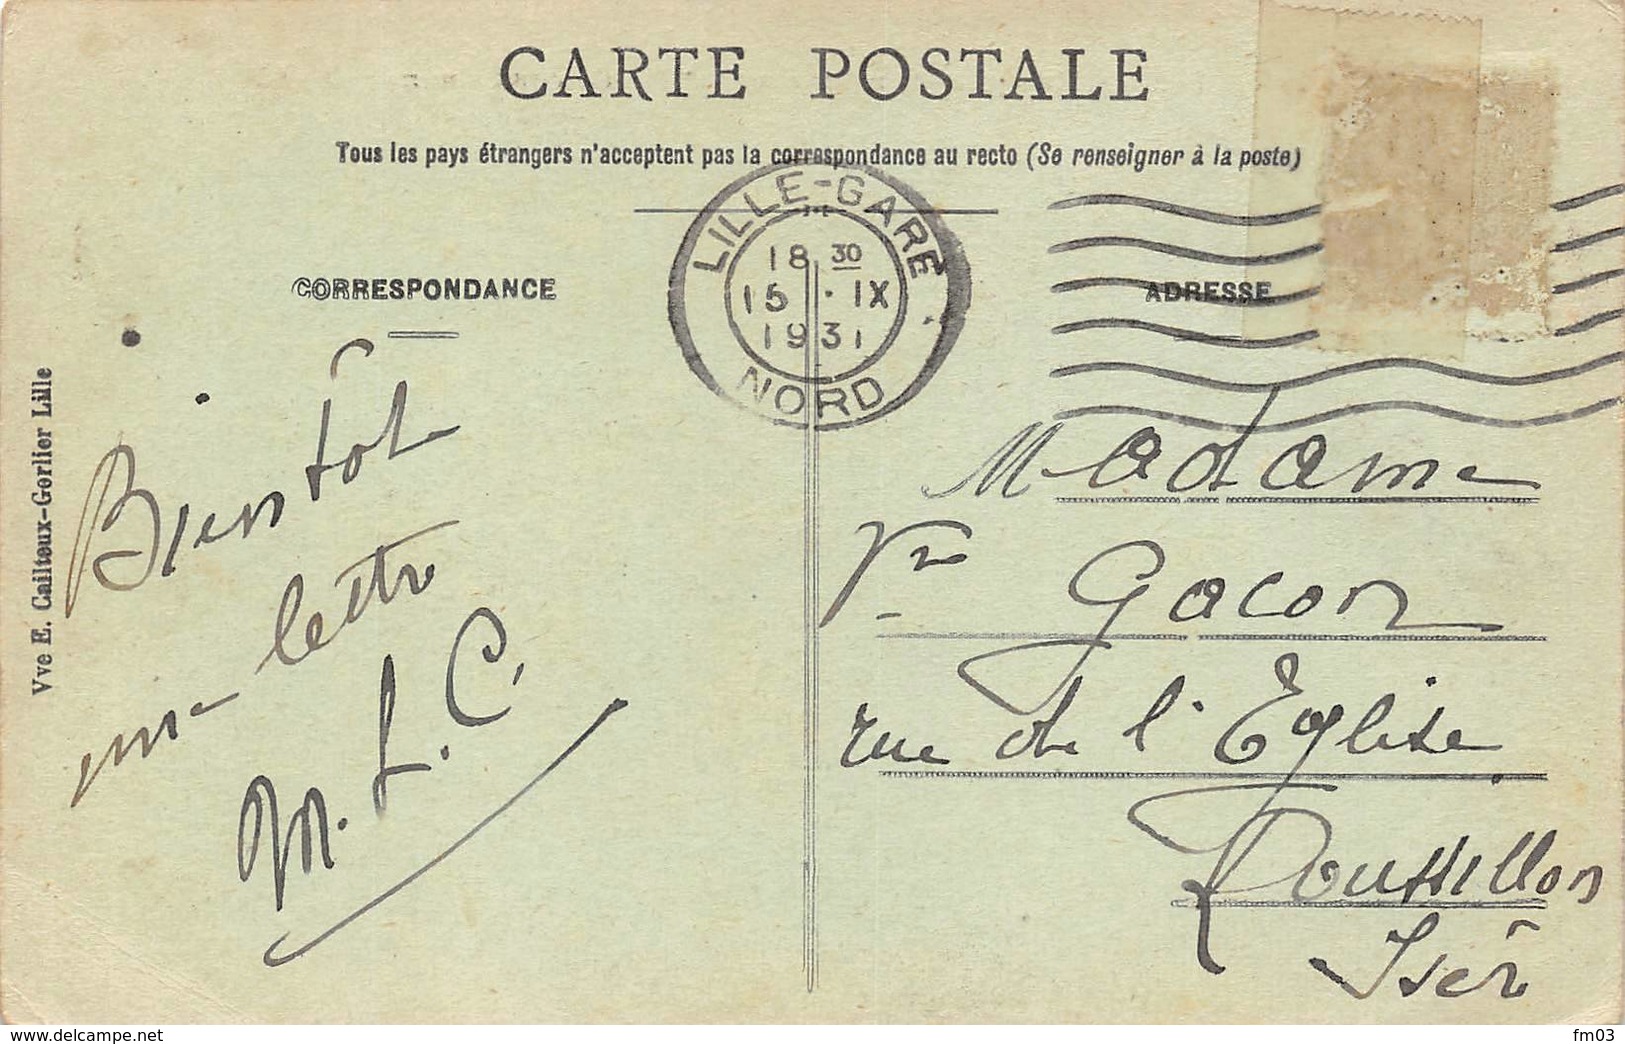 CARTE POSTALE
Tous les pays étrangers n'acceptent pas la correspondance au recto (Se renseigner à la poste)
LILLE-GARE
18 30
15 · IX
1931
NORD
CORRESPONDANCE
ADRESSE
Vve E. Cailteux-Gorlier Lille
Bientôt
ma lettre
M. L. C.
Madame
Vve Gacon
rue de l'Eglise
Roussillon
Isère
www.delcampe.net
fm03